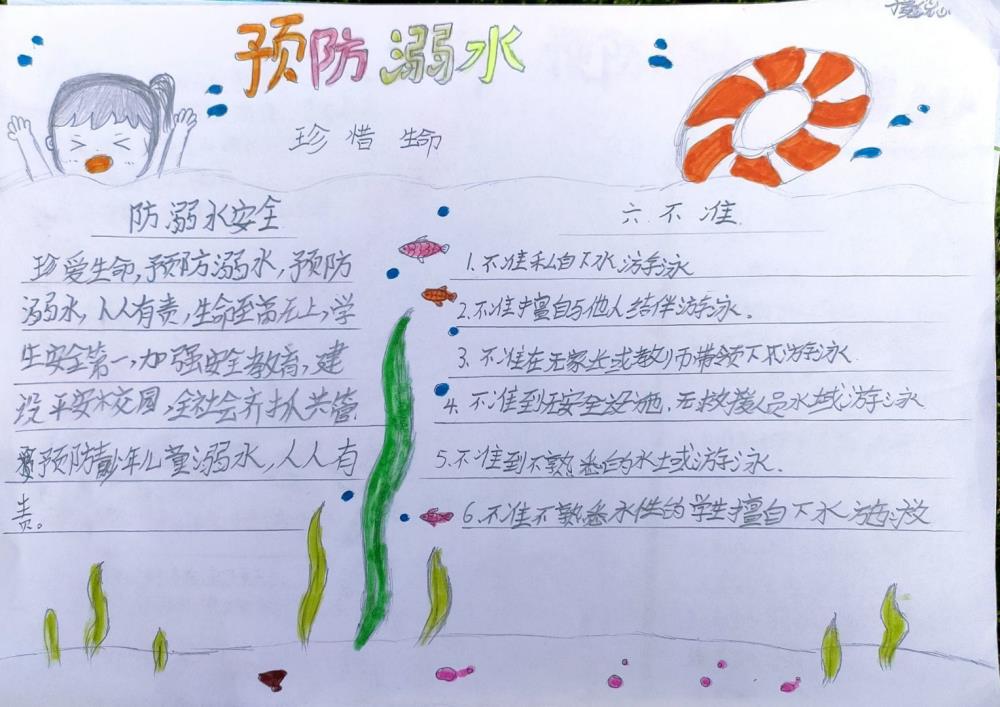 预防溺水
珍惜生命
防溺水安全
珍爱生命,预防溺水,预防
溺水,人人有责,生命至高无上,学
生安全第一,加强安全教育,建
设平安校园,全社会齐抓共管
预防青少年儿童溺水,人人有
责。
六不准
1.不准私自下水游泳
2.不准擅自与他人结伴游泳.
3.不准在无家长或教师带领下游泳
4.不准到无安全设施,无救援人员水域游泳
5.不准到不熟悉的水域游泳.
6.不准不熟悉水性的学生擅自下水施救